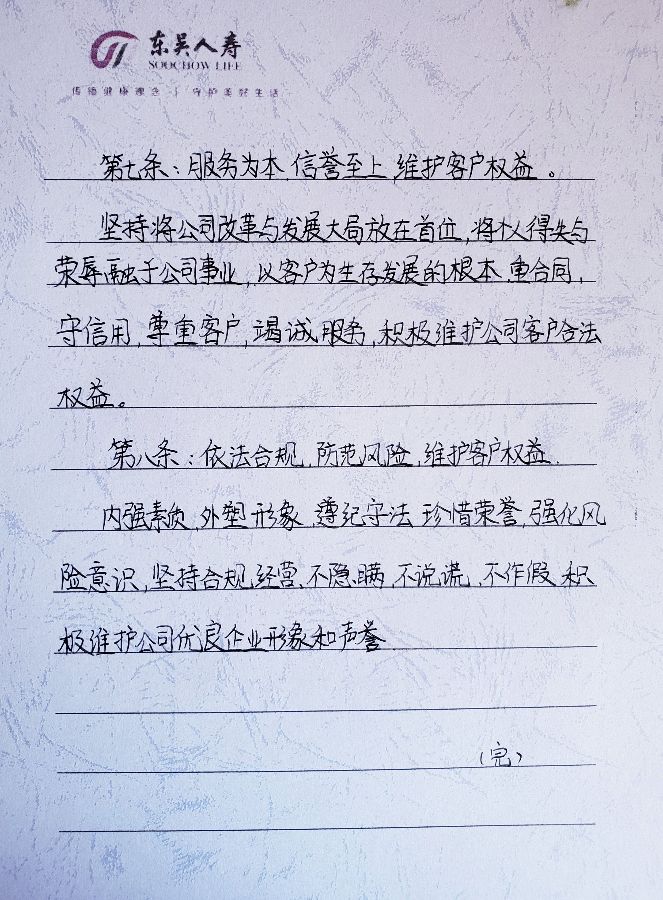 东吴人寿
SOOCHOW LIFE
传播健康理念 | 守护美好生活
第七条：服务为本,信誉至上,维护客户权益。
坚持将公司改革与发展大局放在首位,将个人得失与
荣辱融于公司事业,以客户为生存发展的根本.重合同,
守信用,尊重客户,竭诚服务,积极维护公司客户合法
权益。
第八条：依法合规,防范风险,维护客户权益.
内强素质,外塑形象,遵纪守法,珍惜荣誉,强化风
险意识,坚持合规经营、不隐瞒,不说谎,不作假,积
极维护公司优良企业形象和声誉
(完)